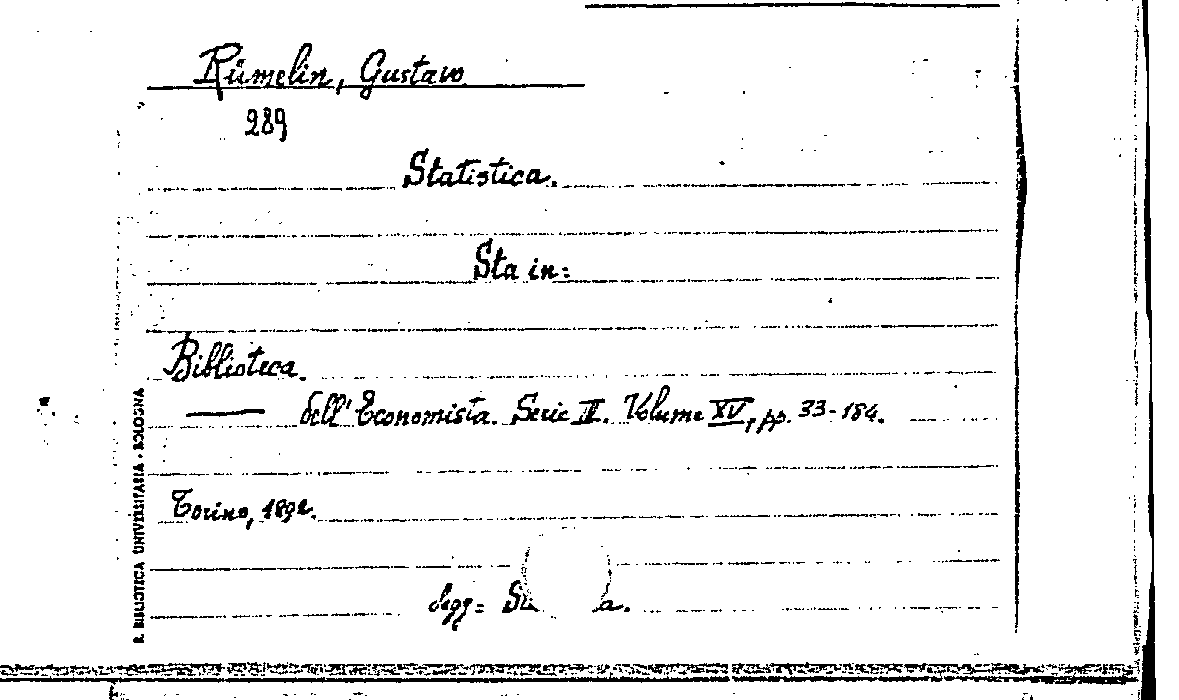 Rümelin, Gustavo
289
Statistica.
Sta in:
Biblioteca.
— dell' Economista. Serie III. Volume XV, pp. 33-184.
Torino, 1892.
R. BIBLIOTECA UNIVERSITARIA - BOLOGNA